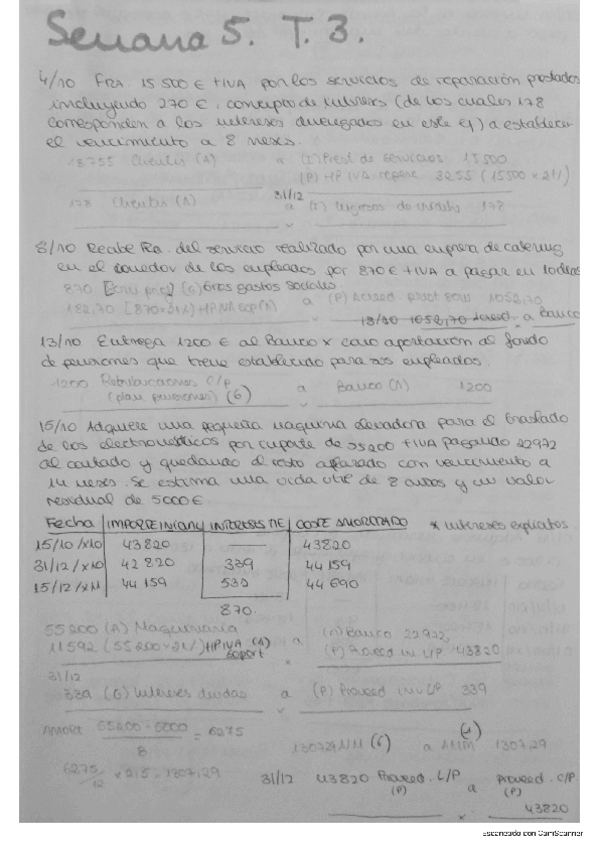 Semana 5. T. 3.
4/10 FRA 15 500 € + IVA por los servicios de reparación prestados
incluyendo 270 €, concepto de intereses (de los cuales 178
corresponden a los intereses devengados en este ej) a establecer
el vencimiento a 8 meses.
18755 Clientes (A) a (I) Prest de servicios 15500
(P) HP IVA reperc 3255 (15500 x 21%)
31/12
178 Clientes (A) a (I) Ingresos de crédito 178
8/10 Recibe Fra. del servicio realizado por una empresa de catering
en el comedor de los empleados por 870 € + IVA a pagar en 10 días
870 (G) Otros gastos sociales
182,70 [870x21%] HP IVA sop (A) a (P) Acreed prest serv 1052,70
18/10 1052,70 Acreed. a Banco
13/10 Entrega 1200 € al Banco x como aportación al fondo
de pensiones que tiene establecido para sus empleados.
1200 Retribuciones C/P
(plan pensiones) (G) a Banco (A) 1200
15/10 Adquiere una pequeña maquina elevadora para el traslado
de los electrodomésticos por importe de 55200 + IVA pagando 22972
al contado y quedando el resto aplazado con vencimiento a
14 meses. Se estima una vida útil de 8 años y un valor
residual de 5000 €.
Fecha IMPORTE INICIAL INTERESES TIE COSTE AMORTIZADO * intereses explícitos
15/10/x10 43820 — 43820
31/12/x10 42820 339 44159
15/12/x11 44159 530 44690
870.
55200 (A) Maquinaria a (A) Banco 22972
11592 (55200x21%) HP IVA (A) soport (P) Proveed IN L/P 43820
31/12
339 (G) Intereses deudas a (P) Proveed inv L/P 339
AMORT 55200 - 5000 = 6275
8
1307,29 (G) a AAIM (-A) 1307,29
6275 x 2,5 = 1307,29
12
31/12 43820 Proveed. L/P (P) a Proveed. C/P (P)
43820
Escaneado con CamScanner